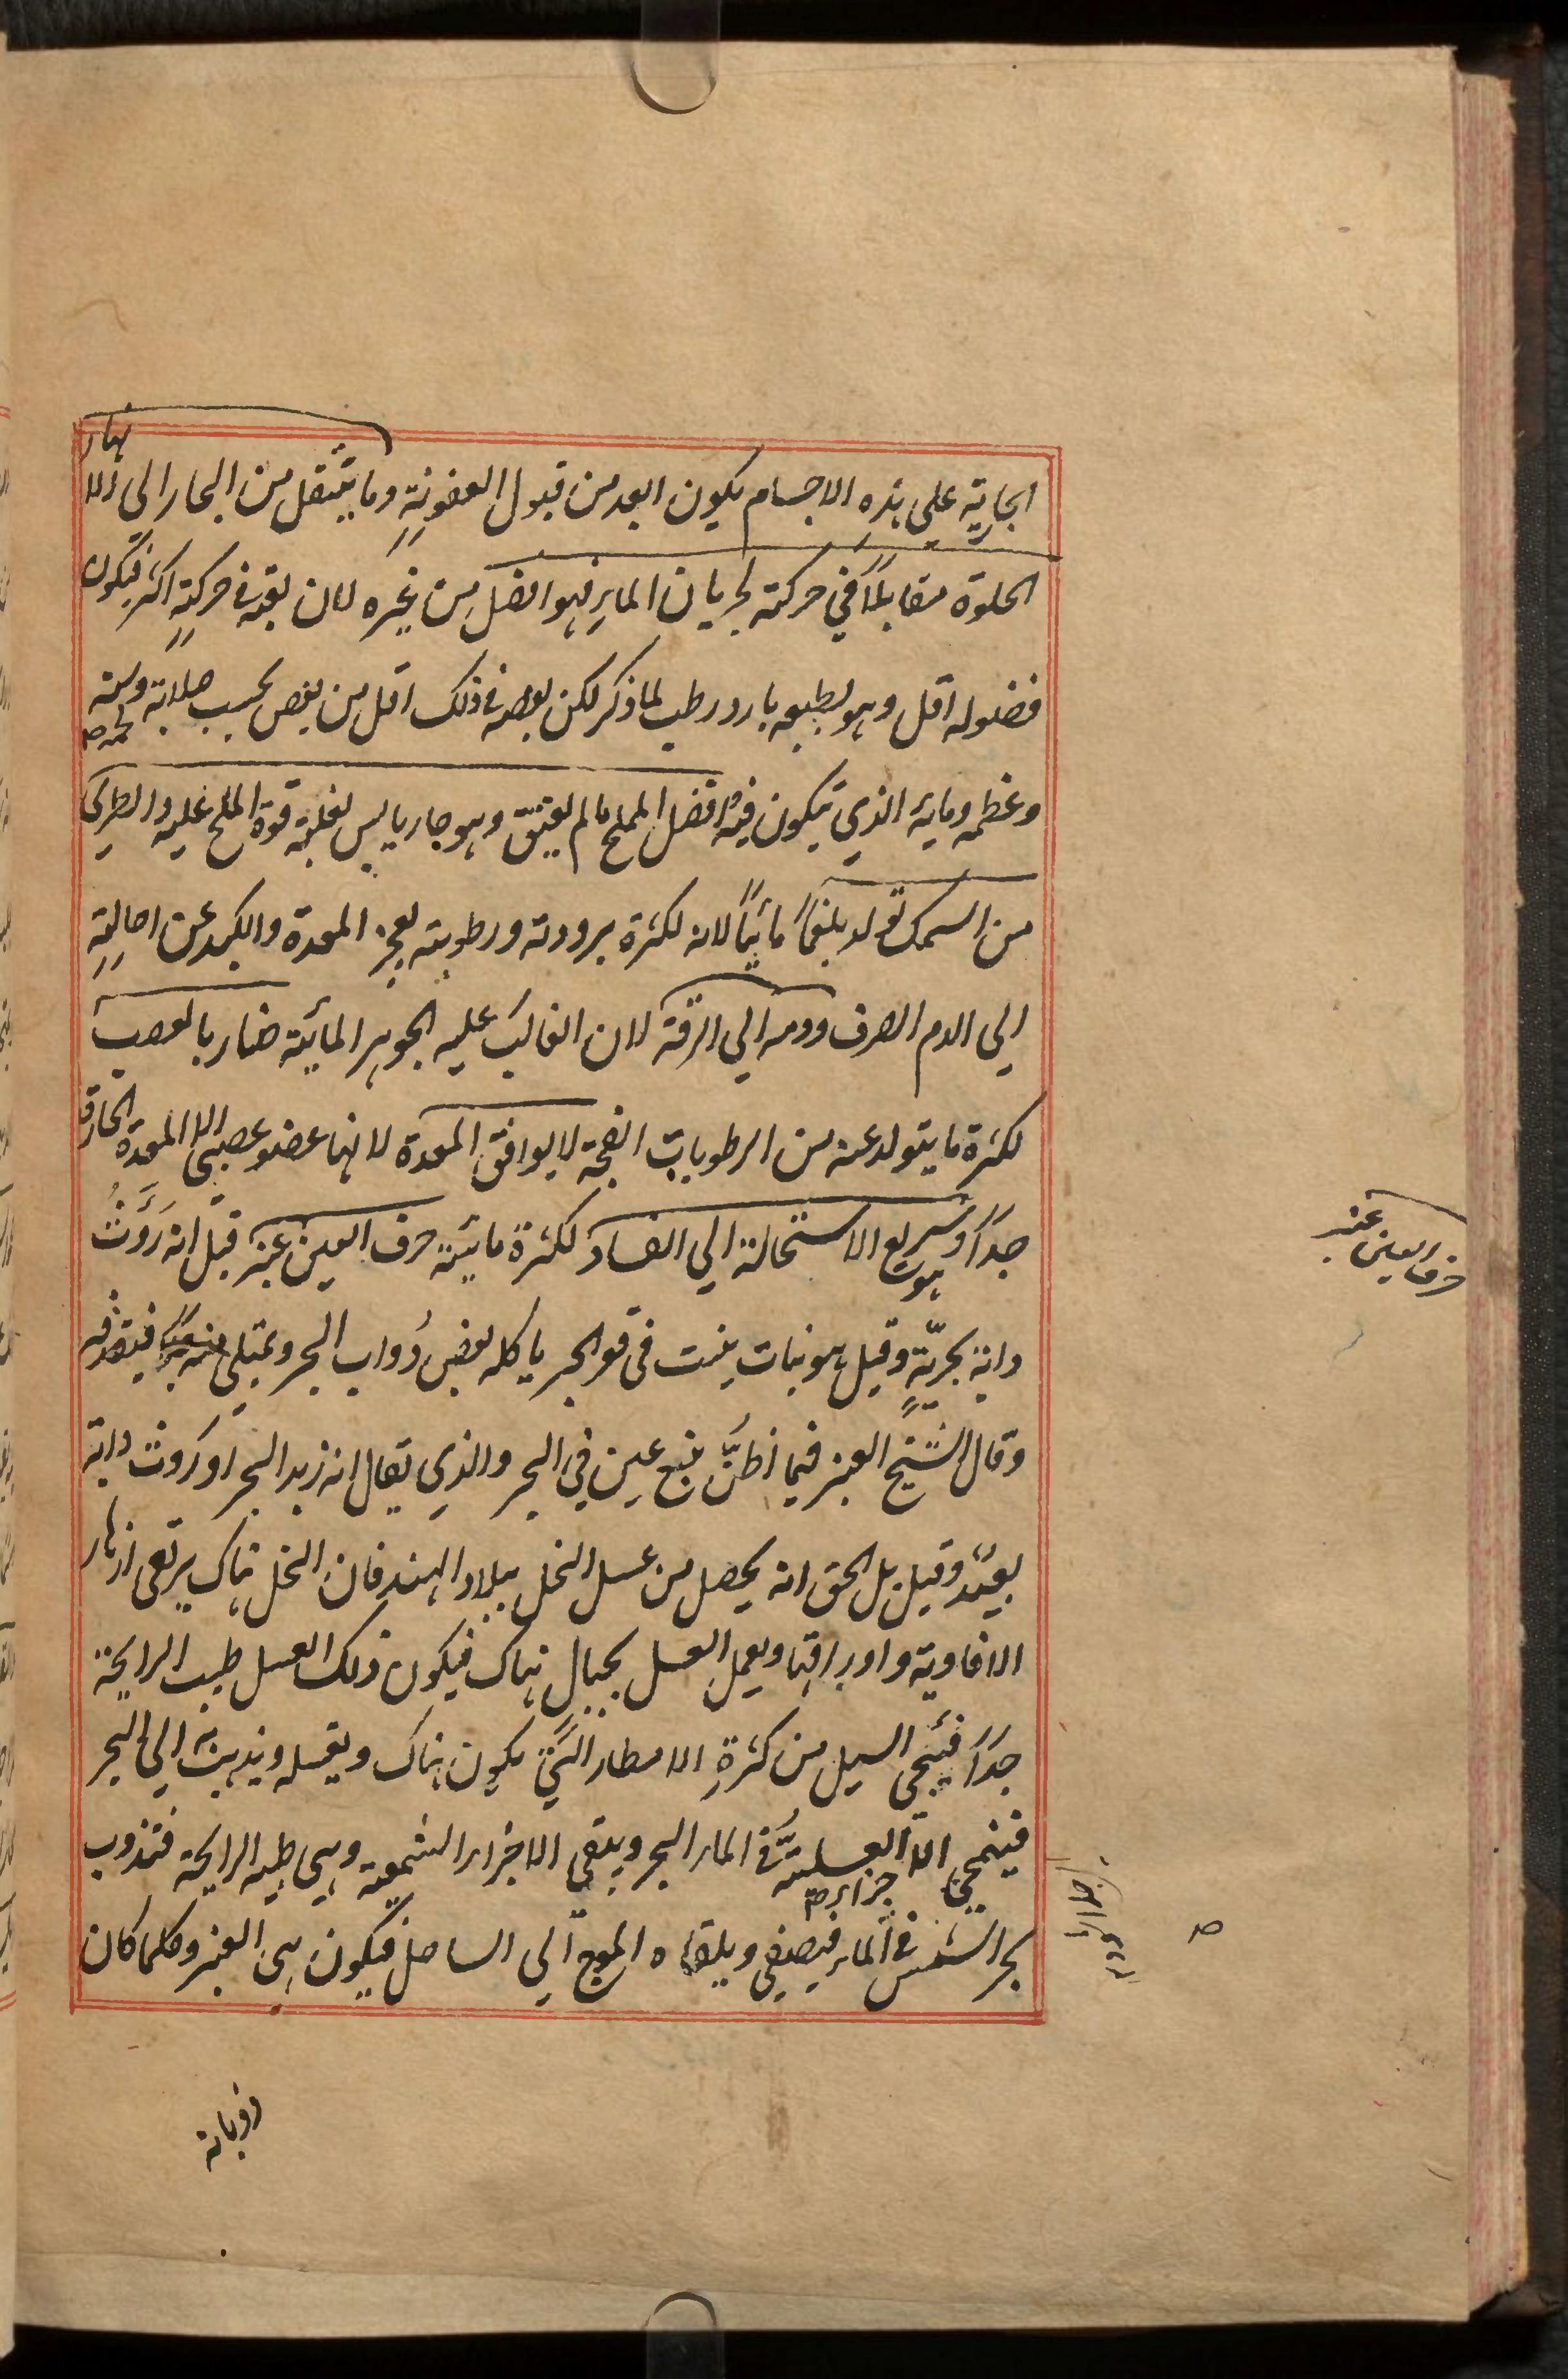 الجارية على هذه الاجسام يكون ابعد من قبول العفونة وما ينتقل من البحار الى الانهار
الحلوة مقابلاً في حركته لجريان الماء فهو افضل من غيره لان تعبه في حركته اكثر فيكون
فضوله اقل وهو بطبعه بارد رطب لما ذكر لكن بعضه في ذلك اقل من بعض بحسب صلابة لحمه
وعظمه ومايه الذي يتكون فيه وافضل المملح مالم يعتق وهو حار يابس لغلبة قوة الملح عليه والطري
من السمك تولد بلغماً مائياً لانه لكثرة برودته ورطوبته يعجز المعدة والكبد عن احالته
الى الدم الصرف ودمه الى الرقة لان الغالب عليه الجوهر المائية ضار بالعصب
لكثرة ما يتولد عنه من الرطوبات الفجة لا يوافق المعدة لانها عضو عصبي الا المعدة الحارة
جداً وهو سريع الاستحالة الى الفساد لكثرة مائيته حرف العين عنبر قيل انه روث
دابة بحرية وقيل هو نبات ينبت في قعر البحر ياكله بعض دواب البحر ويمتلى منه فيقذفه
وقال الشيخ العنبر فيما اظن نبع عين في البحر والذي يقال انه زبد البحر او روث دابة
بعيد وقيل بل الحق انه يحصل من عسل النحل ببلاد الهند فان النحل هناك يرتعى ازهار
الافاوية واوراقها ويعمل العسل بجبال هناك فيكون ذلك العسل طيب الرايحة
جداً فيجى السيل من كثرة الامطار التي يكون هناك ويغسله ويذهب به الى البحر
فينمحي الاجزاء العسلية في الماء البحر ويبقى الاجزاء الشمعية وهي طيبة الرايحة فتذوب
بحر الشمس في الماء فيصفى ويلقاه الموج الى الساحل فيكون هي العنبر وكلما كان
حرف العين عنبر
ذوبانه